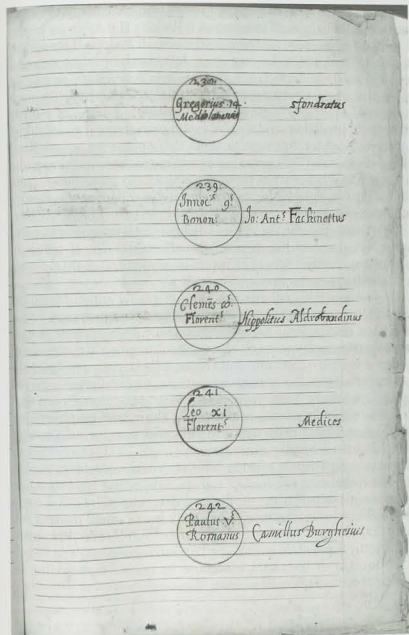 238
Gregorius 14
Mediolanensis
Sfondratus
239
Innoc.s 9s
Bonon.s
Jo: Ant.s Fachinettus
240
Clemēs 8s
Florent.s
Hippolitus Aldrobandinus
241
Leo xi
Florent.s
Medices
242
Paulus Vs
Romanus
Camillus Burghesius